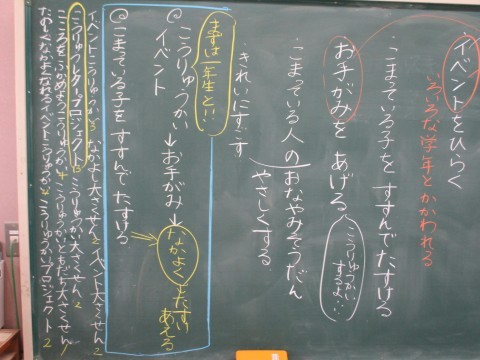 イベントをひらく
いろいろな学年とかかわれる
・こまっている子を すすんでたすける
お手がみを あげる。
こうりゅうかい
するよ…
・こまっている人の おなやみそうだん
やさしくする
・きれいにすごす
まずは一年生と!!
こうりゅうかい → お手がみ → なかよく たすけ
あえる
イベント
◎こまっている子を すすんで たすける
イベントこうりゅうかい3 なかよし大さくせん2 イベント大さくせん2
こうりゅうレクプロジェクト13 こうりゅうかい大さくせん2
こころをふかめようこうりゅうかい4 こうりゅうかいともだち大さくせん1
たのしくなかよくなれるイベントこうりゅうかい4 こうりゅうかいプロジェクト2